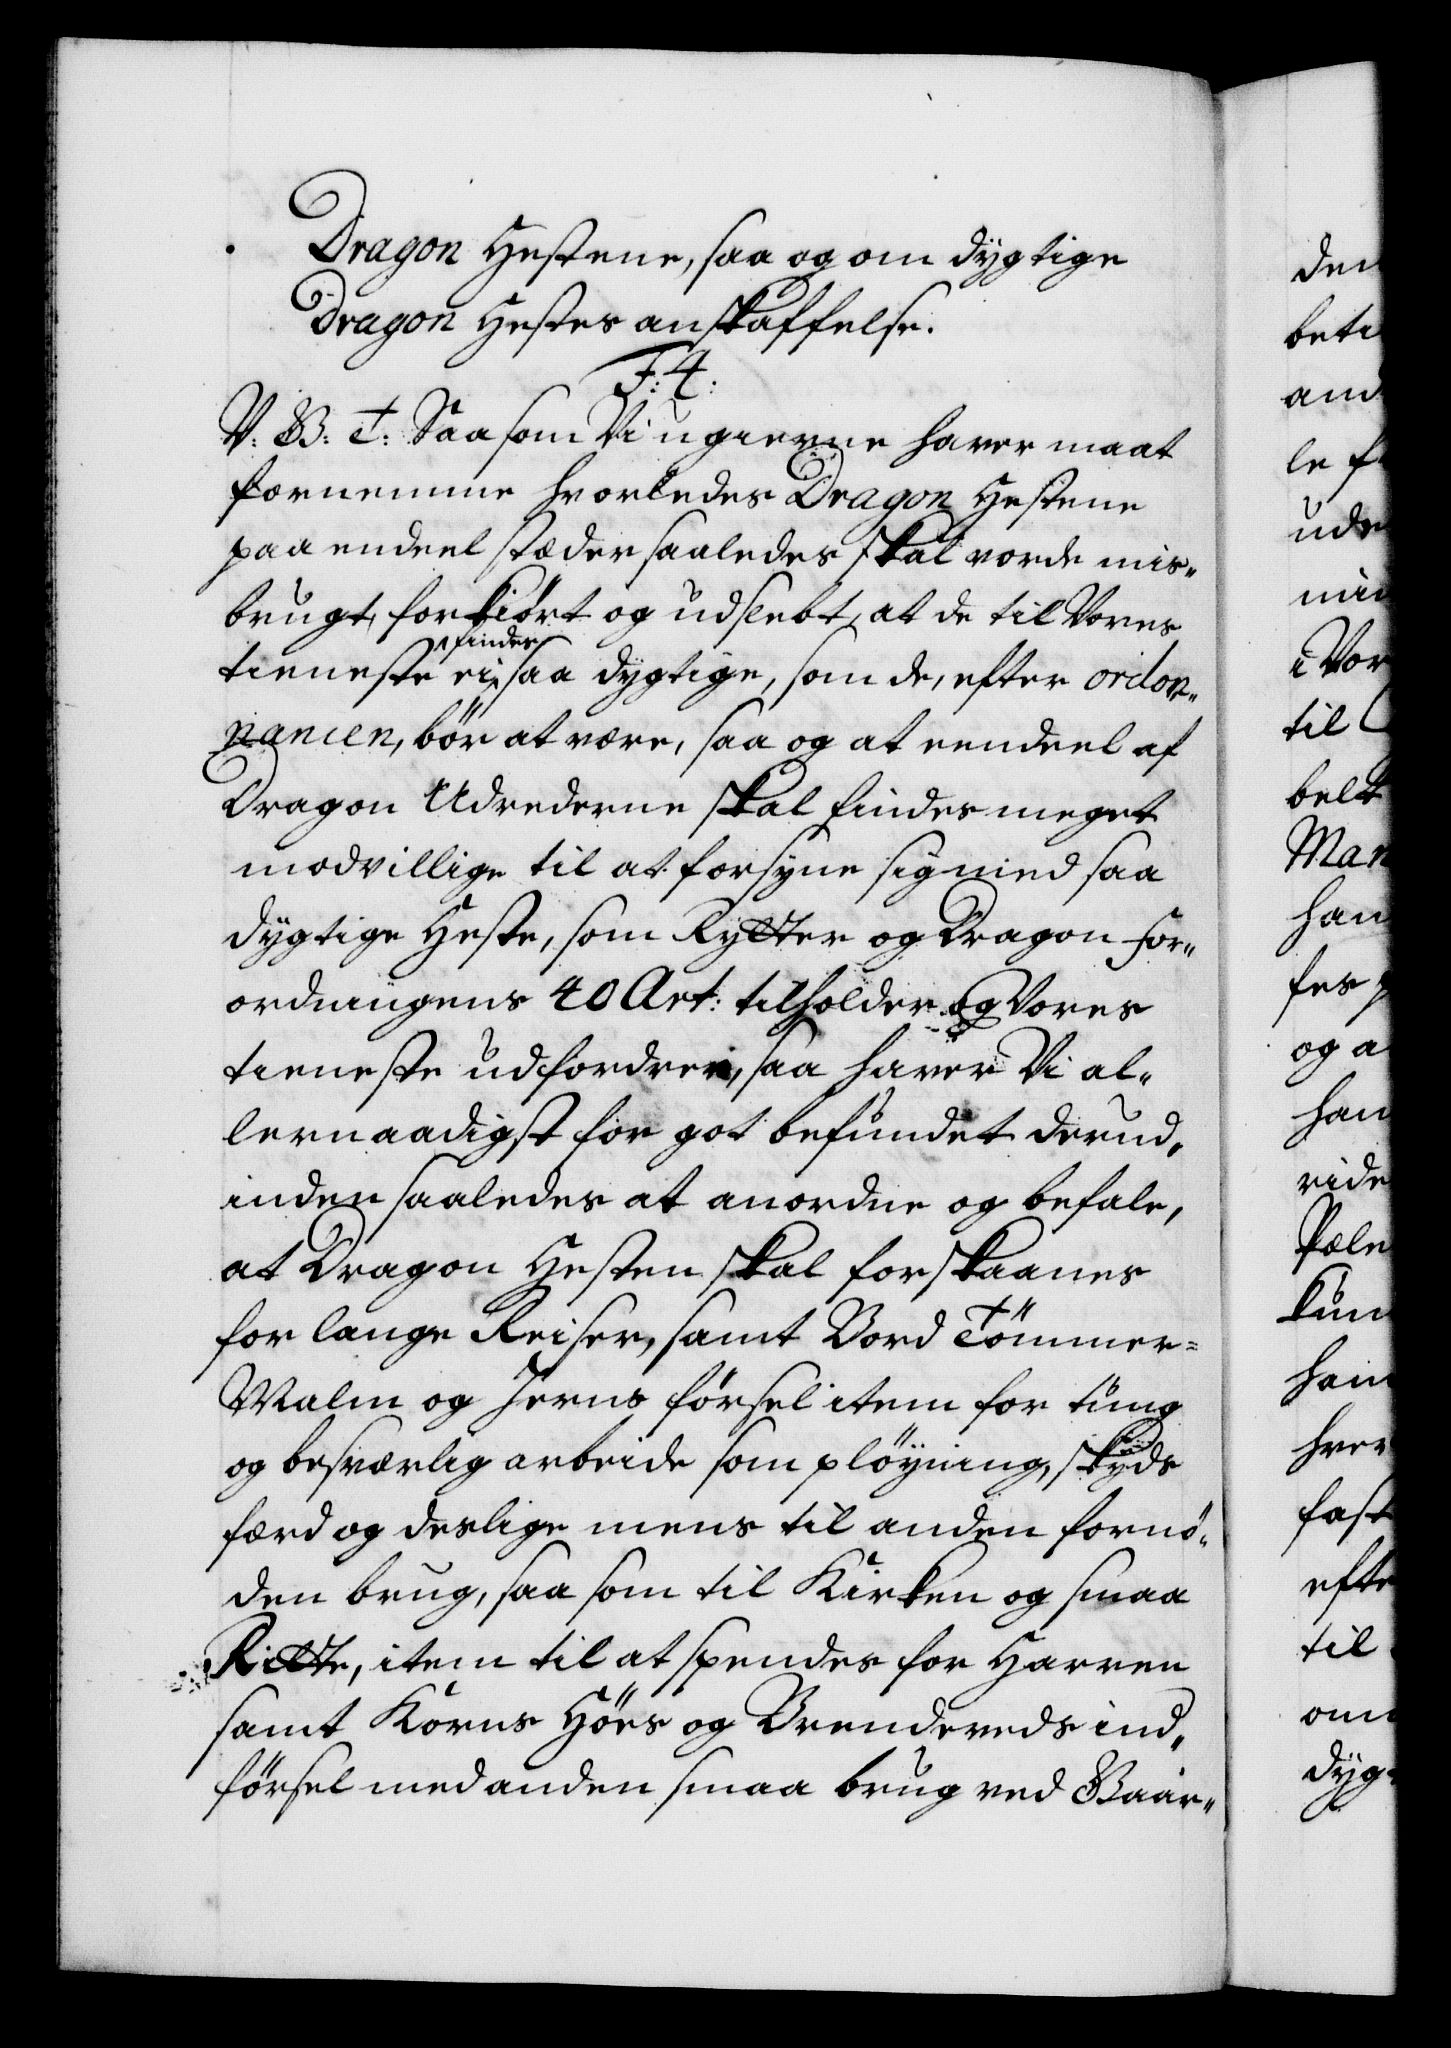 Dragon Hestene, saa og om dygtige
Dragon Hestes anskaffelse.
F: 4:
V: G: T: Saasom Vi ugierne haver maat
fornemme hvorledes Dragon Hestene
paa endeel stæder saaledes skal vorde mis„
brugt, forkiört og udslebt, at de til Vores
tieneste ei findes saa dygtige, som de, efter ordon„
nancen, bör at være, saa og at eendeel af
Dragon Udrederne skal findes meget
modvillige til at forsyne sig med saa
dygtige Heste, som Rytter og Dragon For„
ordningens 40 Art: tilholder og Vores
tieneste udfordrer, saa haver Vi al„
lernaadigst for got befundet derud„
inden saaledes at anordne og befale,
at Dragon Hesten skal forskaanes
for lange Reiser, samt Bord Tömmer=
Malm og Jerns förсel item for tung
og besværlig arbeide som plöyning, skyds
færd og deslige mens til anden fornö„
den brug, saa som til Kirken og smaa
Ritte, item til at spendes for Harven
samt Korns Höes og Brendeveds ind„
försel med anden smaa brug ved Gaar„
den
beti
and
le f
ude
min
i Vor
til
belt
Man
han
fes
og a
han
ride
Pæle
kun
han
hver
fast
efte
til
om
dyg